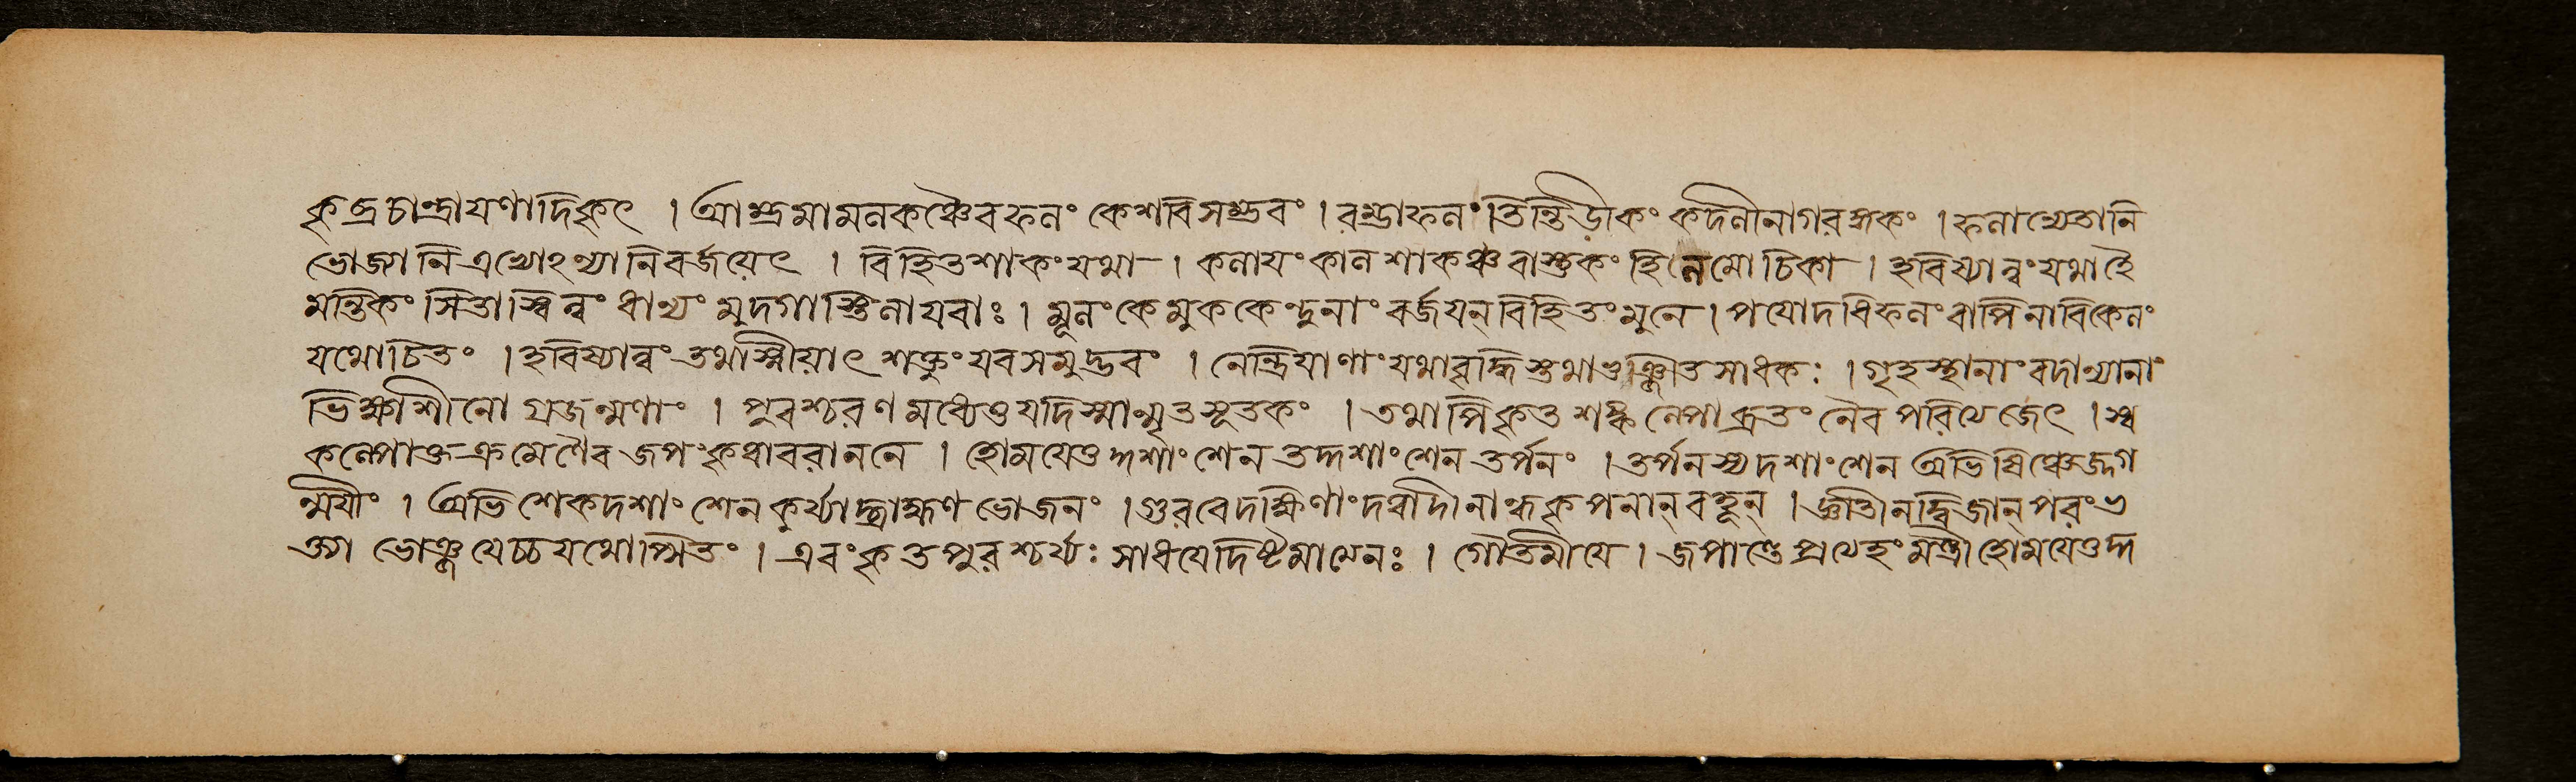 কৃচ্ছ্রচান্দ্রায়ণাদিকৃৎ । আম্রমামলকঞ্চৈবফলং কেশবিসম্ভবং । রম্ভাফলং তিন্তিড়ীকং কদলীনাগরঙ্গকং । ফলান্যেতানি
ভোজ্যানিএভ্যোঽন্যানিবর্জয়েৎ । বিহিতশাকংযথা । কলায়ংকালশাকঞ্চবাস্তুকং হিলমোচিকা । হবিষ্যান্নংযথাহৈ
মন্তিকং সিতাস্বিন্নং ধান্যং মুদগাস্তিলাযবাঃ । মূলংকেমুককেন্দুনাং বর্জয়ন্বিহিতংমুনে । পয়োদধিফলংবাপিনাবিকেলং
যথোচিতং । হবিষ্যান্নং তথাস্নীয়াৎ শক্তুংযবসমুদ্ভবং । নেন্দ্রিয়াণাংযথাবৃদ্ধিস্তথাভুঞ্জিতসাধকঃ । গৃহস্থানাংবদান্যানাং
ভিক্ষাশীনোগ্রজন্মণাং । পুরশ্চরণমধ্যেতুযদিস্যান্মৃতসূতকং । তথাপিকৃতশঙ্কল্পোব্রতং নৈবপরিত্যেজেৎ । স্ব
কল্পোক্তক্রমেণৈবজপংকৃত্বাবরাননে । হোময়েত্তদ্দশাংশেনতদ্দশাংশেনতর্পনং । তর্পনস্যদশাংশেন অভিষিঞ্চেজ্জগ
ন্ময়ীং । অভিশেকদশাংশেনকুর্য্যাদ্ব্রাহ্মণভোজনং । গুরবেদক্ষিণাংদত্বাদীনান্ধকৃপনান্বহূন্ । জ্ঞাতীনদ্বিজান্পরংভ
ক্ত্যা ভোজয়েচ্চযথোপ্সিতং । এবংকৃতপুরশ্চর্য্যঃ সাধয়েদিষ্টমাত্মেনঃ । গৌতমীয়ে । জপান্তেপ্রত্যেহংমন্ত্রীহোময়েত্তদ্দ